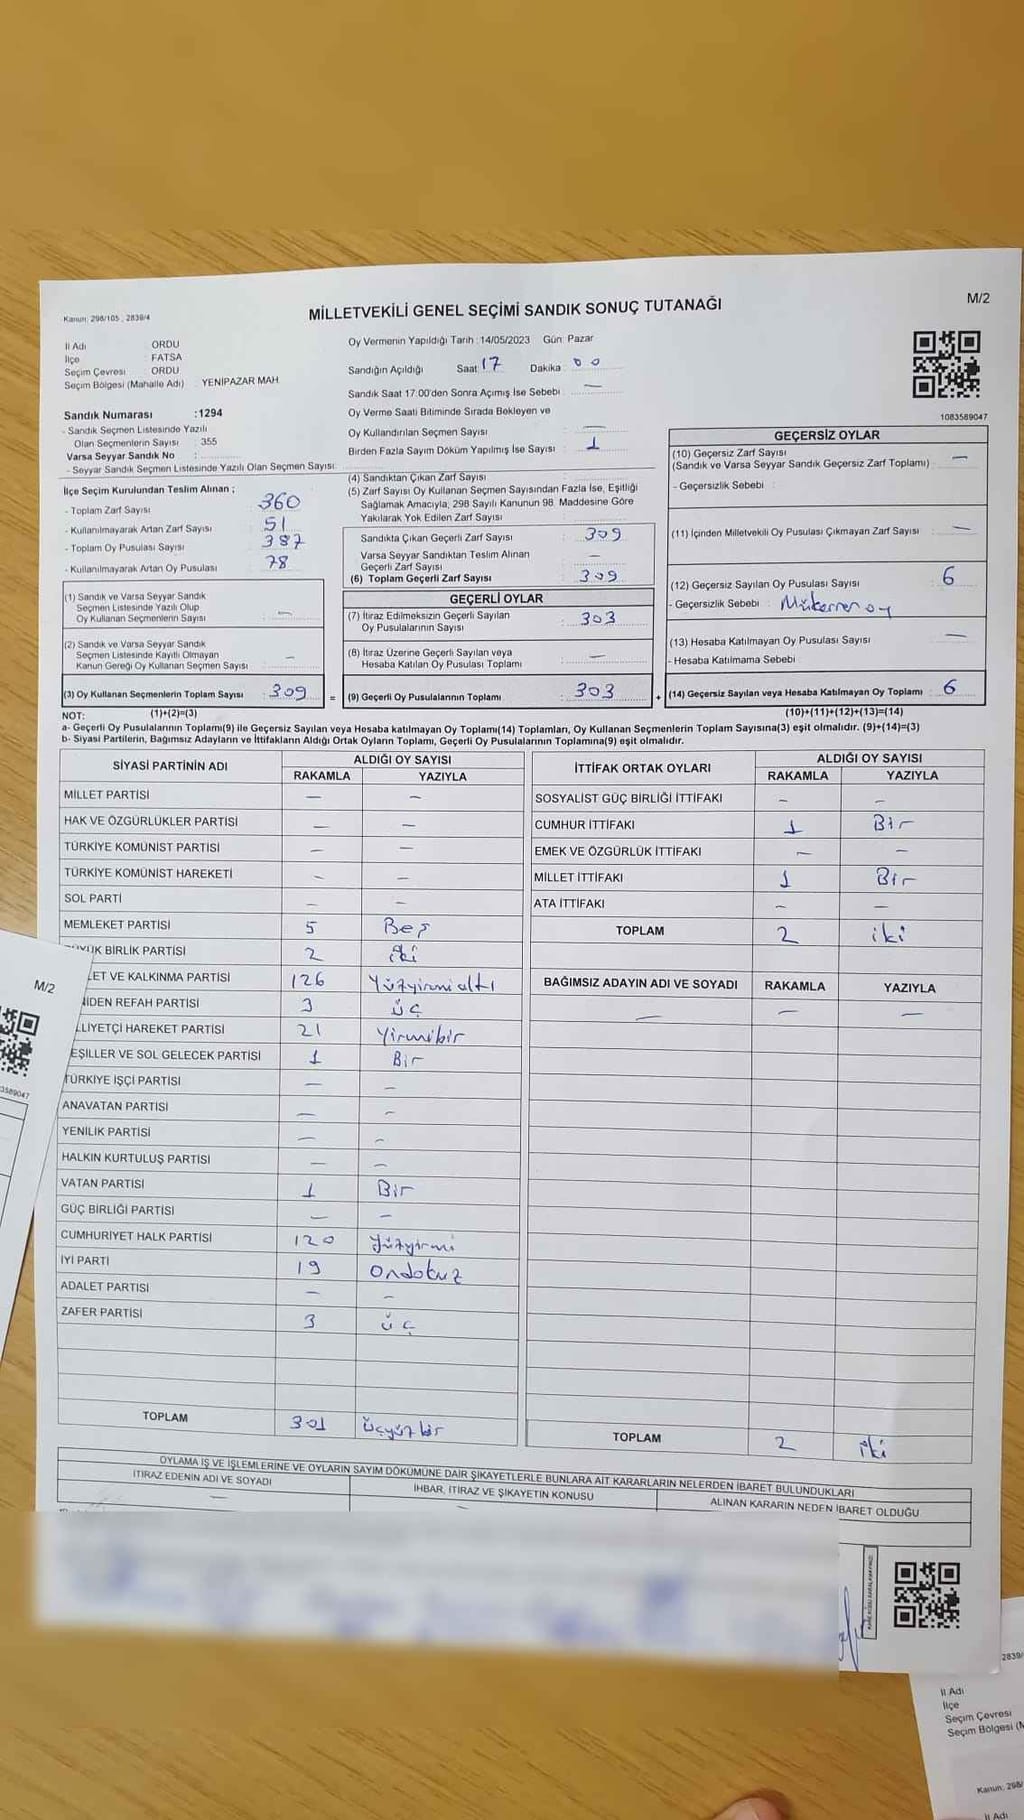 M/2
Kanun: 298/105 , 2839/4
MİLLETVEKİLİ GENEL SEÇİMİ SANDIK SONUÇ TUTANAĞI
İl Adı ORDU
İlçe FATSA
Seçim Çevresi : ORDU
Seçim Bölgesi (Mahalle Adı) : YENİPAZAR MAH.
Sandık Numarası :1294
- Sandık Seçmen Listesinde Yazılı
Olan Seçmenlerin Sayısı : 355
Varsa Seyyar Sandık No :
- Seyyar Sandık Seçmen Listesinde Yazılı Olan Seçmen Sayısı:
Oy Vermenin Yapıldığı Tarih : 14/05/2023 Gün: Pazar
Sandığın Açıldığı Saat 17 Dakika 00
Sandık Saat 17:00'den Sonra Açımış İse Sebebi : —
Oy Verme Saati Bitiminde Sırada Bekleyen ve
Oy Kullandırılan Seçmen Sayısı : —
Birden Fazla Sayım Döküm Yapılmış İse Sayısı : 1
1083589047
İlçe Seçim Kurulundan Teslim Alınan ;
- Toplam Zarf Sayısı : 360
- Kullanılmayarak Artan Zarf Sayısı : 51
- Toplam Oy Pusulası Sayısı : 387
- Kullanılmayarak Artan Oy Pusulası : 78
(1) Sandık ve Varsa Seyyar Sandık
Seçmen Listesinde Yazılı Olup
Oy Kullanan Seçmenlerin Sayısı : —
(2) Sandık ve Varsa Seyyar Sandık
Seçmen Listesinde Kayıtlı Olmayan
Kanun Gereği Oy Kullanan Seçmen Sayısı : —
(3) Oy Kullanan Seçmenlerin Toplam Sayısı : 309
(1)+(2)=(3)
(4) Sandıktan Çıkan Zarf Sayısı :
(5) Zarf Sayısı Oy Kullanan Seçmen Sayısından Fazla İse, Eşitliği
Sağlamak Amacıyla, 298 Sayılı Kanunun 98. Maddesine Göre
Yakılarak Yok Edilen Zarf Sayısı :
Sandıkta Çıkan Geçerli Zarf Sayısı : 309
Varsa Seyyar Sandıktan Teslim Alınan
Geçerli Zarf Sayısı : —
(6) Toplam Geçerli Zarf Sayısı : 309
GEÇERLİ OYLAR
(7) İtiraz Edilmeksizin Geçerli Sayılan
Oy Pusulalarının Sayısı : 303
(8) İtiraz Üzerine Geçerli Sayılan veya
Hesaba Katılan Oy Pusulası Toplamı : —
= (9) Geçerli Oy Pusulalarının Toplamı : 303
GEÇERSİZ OYLAR
(10) Geçersiz Zarf Sayısı
(Sandık ve Varsa Seyyar Sandık Geçersiz Zarf Toplamı) : —
- Geçersizlik Sebebi :
(11) İçinden Milletvekili Oy Pusulası Çıkmayan Zarf Sayısı : —
(12) Geçersiz Sayılan Oy Pusulası Sayısı : 6
- Geçersizlik Sebebi : Mükerrer oy
(13) Hesaba Katılmayan Oy Pusulası Sayısı : —
- Hesaba Katılmama Sebebi :
+ (14) Geçersiz Sayılan veya Hesaba Katılmayan Oy Toplamı : 6
(10)+(11)+(12)+(13)=(14)
NOT:
a- Geçerli Oy Pusulalarının Toplamı(9) ile Geçersiz Sayılan veya Hesaba katılmayan Oy Toplamı(14) Toplamları, Oy Kullanan Seçmenlerin Toplam Sayısına(3) eşit olmalıdır. (9)+(14)=(3)
b- Siyasi Partilerin, Bağımsız Adayların ve İttifakların Aldığı Ortak Oyların Toplamı, Geçerli Oy Pusulalarının Toplamına(9) eşit olmalıdır.
SİYASİ PARTİNİN ADI ALDIĞI OY SAYISI
RAKAMLA YAZIYLA
MİLLET PARTİSİ — —
HAK VE ÖZGÜRLÜKLER PARTİSİ — —
TÜRKİYE KOMÜNİST PARTİSİ — —
TÜRKİYE KOMÜNİST HAREKETİ — —
SOL PARTİ — —
MEMLEKET PARTİSİ 5 Beş
YÜK BİRLİK PARTİSİ 2 iki
LET VE KALKINMA PARTİSİ 126 Yüzyirmialtı
NİDEN REFAH PARTİSİ 3 üç
LLİYETÇİ HAREKET PARTİSİ 21 Yirmibir
EŞİLLER VE SOL GELECEK PARTİSİ 1 Bir
TÜRKİYE İŞÇİ PARTİSİ — —
ANAVATAN PARTİSİ — —
YENİLİK PARTİSİ — —
HALKIN KURTULUŞ PARTİSİ — —
VATAN PARTİSİ 1 Bir
GÜÇ BİRLİĞİ PARTİSİ — —
CUMHURİYET HALK PARTİSİ 120 yüzyirmi
İYİ PARTİ 19 Ondokuz
ADALET PARTİSİ — —
ZAFER PARTİSİ 3 üç
TOPLAM 301 üçyüzbir
İTTİFAK ORTAK OYLARI ALDIĞI OY SAYISI
RAKAMLA YAZIYLA
SOSYALİST GÜÇ BİRLİĞİ İTTİFAKI — —
CUMHUR İTTİFAKI 1 Bir
EMEK VE ÖZGÜRLÜK İTTİFAKI — —
MİLLET İTTİFAKI 1 Bir
ATA İTTİFAKI — —
TOPLAM 2 iki
BAĞIMSIZ ADAYIN ADI VE SOYADI RAKAMLA YAZIYLA
— — —
TOPLAM 2 iki
OYLAMA İŞ VE İŞLEMLERİNE VE OYLARIN SAYIM DÖKÜMÜNE DAİR ŞİKAYETLERLE BUNLARA AİT KARARLARIN NELERDEN İBARET BULUNDUKLARI
İTİRAZ EDENİN ADI VE SOYADI İHBAR, İTİRAZ VE ŞİKAYETİN KONUSU ALINAN KARARIN NEDEN İBARET OLDUĞU
— —
M/2
3589047
2839/
İl Adı
İlçe
Seçim Çevresi
Seçim Bölgesi (M
Kanun: 298/
İl Adı